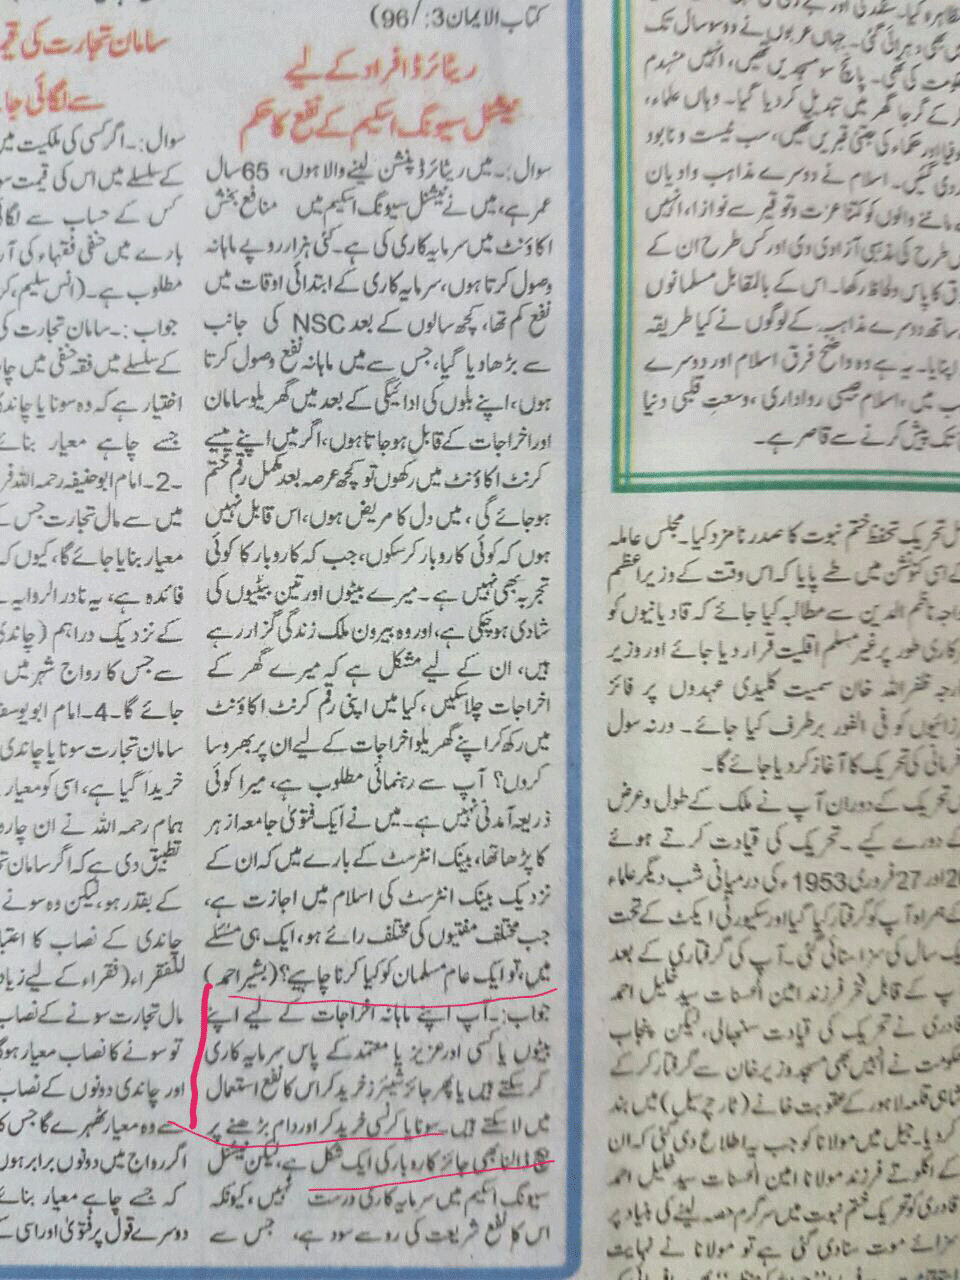 کتاب الایمان 3: /96)
ریٹائرڈ افراد کے لیے
نیشنل سیونگ اسکیم کے نفع کا حکم
سوال:۔ میں ریٹائرڈ پنشن لینے والا ہوں، 65 سال
عمر ہے، میں نے نیشنل سیونگ اسکیم میں منافع بخش
اکاؤنٹ میں سرمایہ کاری کی ہے۔ کئی ہزار روپے ماہانہ
وصول کرتا ہوں، سرمایہ کاری کے ابتدائی اوقات میں
نفع کم تھا، کچھ سالوں کے بعد NSC کی جانب
سے بڑھا دیا گیا، جس سے میں ماہانہ نفع وصول کرتا
ہوں، اپنے بلوں کی ادائیگی کے بعد میں گھریلو سامان
اور اخراجات کے قابل ہو جاتا ہوں، اگر میں اپنے پیسے
کرنٹ اکاؤنٹ میں رکھوں تو کچھ عرصہ بعد مکمل رقم ختم
ہو جائے گی، میں دل کا مریض ہوں، اس قابل نہیں
ہوں کہ کوئی کاروبار کر سکوں، جب کہ کاروبار کا کوئی
تجربہ بھی نہیں ہے۔ میرے بیٹوں اور تین بیٹیوں کی
شادی ہو چکی ہے، اور وہ بیرون ملک زندگی گزار رہے
ہیں، ان کے لیے مشکل ہے کہ میرے گھر کے
اخراجات چلا سکیں، کیا میں اپنی رقم کرنٹ اکاؤنٹ
میں رکھ کر اپنے گھریلو اخراجات کے لیے ان پر بھروسا
کروں؟ آپ سے رہنمائی مطلوب ہے، میرا کوئی
ذریعہ آمدنی نہیں ہے۔ میں نے ایک فتویٰ جامعہ ازہر
کا پڑھا تھا، بینک انٹرسٹ کے بارے میں کہ ان کے
نزدیک بینک انٹرسٹ کی اسلام میں اجازت ہے،
جب مختلف مفتیوں کی مختلف رائے ہو، ایک ہی مسئلے
میں، تو ایک عام مسلمان کو کیا کرنا چاہیے؟ (بشیر احمد)
جواب:۔ آپ اپنے ماہانہ اخراجات کے لیے اپنے
بیٹوں یا کسی اور عزیز یا معتمد کے پاس سرمایہ کاری
کر سکتے ہیں یا پھر جائز شیئرز خرید کر اس کا نفع استعمال
میں لا سکتے ہیں۔ سونا یا کرنسی خرید کر اور دام بڑھنے پر
بیچ ڈالنا بھی جائز کاروبار کی ایک شکل ہے، لیکن نیشنل
سیونگ اسکیم میں سرمایہ کاری درست نہیں، کیونکہ
اس کا نفع شریعت کی رو سے سود ہے، جس سے
سامان تجارت کی
سے لگائی جا
سوال:۔ اگر کسی کی ملکیت میں
کے سلسلے میں اس کی قیمت
کس کے حساب سے لگا
بارے میں حنفی فقہاء کی آر
مطلوب ہے۔ (انس سلیم،
جواب:۔ سامان تجارت کی
کے سلسلے میں فقہ حنفی میں
اختیار ہے کہ وہ سونا یا چاند
جسے چاہے معیار بنائے
۔2۔ امام ابو حنیفہ رحمہ اللہ
میں سے مال تجارت جس
معیار بنایا جائے گا، کیوں کہ
فائدہ ہے، یہ نادر الروایہ
کے نزدیک دراہم (چاندی
سے جس کا رواج شہر میں
جائے گا۔4۔ امام ابو یوسف
سامان تجارت سونا یا چاندی
خریدا گیا ہے، اسی کو معیار
ہمام رحمہ اللہ نے ان چار
تطبیق دی ہے کہ اگر سامان
کے بقدر ہو، لیکن وہ سونے
چاندی کے نصاب کا اعتبا
للفقراء (فقراء کے لیے زیاد
مال تجارت سونے کے نصاب
تو سونے کا نصاب معیار ہوگ
اور چاندی دونوں کے نصاب
سے وہ معیار ٹھہرے گا جس کا
اگر رواج میں دونوں برابر ہوں
کہ جسے چاہے معیار بنائے
دوسرے قول پر فتویٰ اور اسی
بھی دہرائی گئی۔ جہاں عربوں نے دو سو سال تک
حکومت کی تھی۔ پانچ سو مسجدیں تھیں، انہیں منہدم
کرکے گرجا گھر میں تبدیل کردیا گیا۔ وہاں علماء،
اور حکماء کی جتنی قبریں تھیں، سب نیست و نابود
کردی گئیں۔ اسلام نے دوسرے مذاہب و ادیان
ماننے والوں کو کتنا عزت و توقیر سے نوازا، انہیں
طرح کی مذہبی آزادی دی اور کس طرح ان کے
کا پاس و لحاظ رکھا۔ اس کے بالمقابل مسلمانوں
ساتھ دوسرے مذاہب کے لوگوں نے کیا طریقہ
اپنایا۔ یہ ہے وہ واضح فرق اسلام اور دوسرے
میں، اسلام جیسی رواداری، وسعت قلبی دنیا
تک پیش کرنے سے قاصر ہے۔
تحریک تحفظ ختم نبوت کا صدر نامزد کیا۔ مجلس عاملہ
کے اسی کنونشن میں طے پایا کہ اس وقت کے وزیر اعظم
خواجہ ناظم الدین سے مطالبہ کیا جائے کہ قادیانیوں کو
سرکاری طور پر غیر مسلم اقلیت قرار دیا جائے اور وزیر
خارجہ ظفر اللہ خان سمیت کلیدی عہدوں پر فائز
مرزائیوں کو فی الفور برطرف کیا جائے۔ ورنہ سول
نافرمانی کی تحریک کا آغاز کر دیا جائے گا۔
تحریک کے دوران آپ نے ملک کے طول و عرض
کے دورے کیے۔ تحریک کی قیادت کرتے ہوئے
26 اور 27 فروری 1953ء کی درمیانی شب دیگر علماء
کے ہمراہ آپ کو گرفتار کیا گیا اور سکیورٹی ایکٹ کے تحت
ایک سال کی سزا سنائی گئی۔ آپ کی گرفتاری کے بعد
آپ کے قابل فخر فرزند امین الحسنات سید خلیل احمد
قادری نے تحریک کی قیادت سنبھالی، لیکن پنجاب
حکومت نے انہیں بھی مسجد وزیر خان سے گرفتار کر کے
شاہی قلعہ لاہور کے عقوبت خانے (ٹارچر سیل) میں بند
کر دیا۔ جیل میں مولانا کو جب یہ اطلاع دی گئی کہ ان
کے اکلوتے فرزند مولانا امین الحسنات سید خلیل احمد
قادری کو تحریک ختم نبوت میں سرگرم حصہ لینے کی بنیاد پر
سزائے موت سنا دی گئی ہے تو مولانا نے نہایت